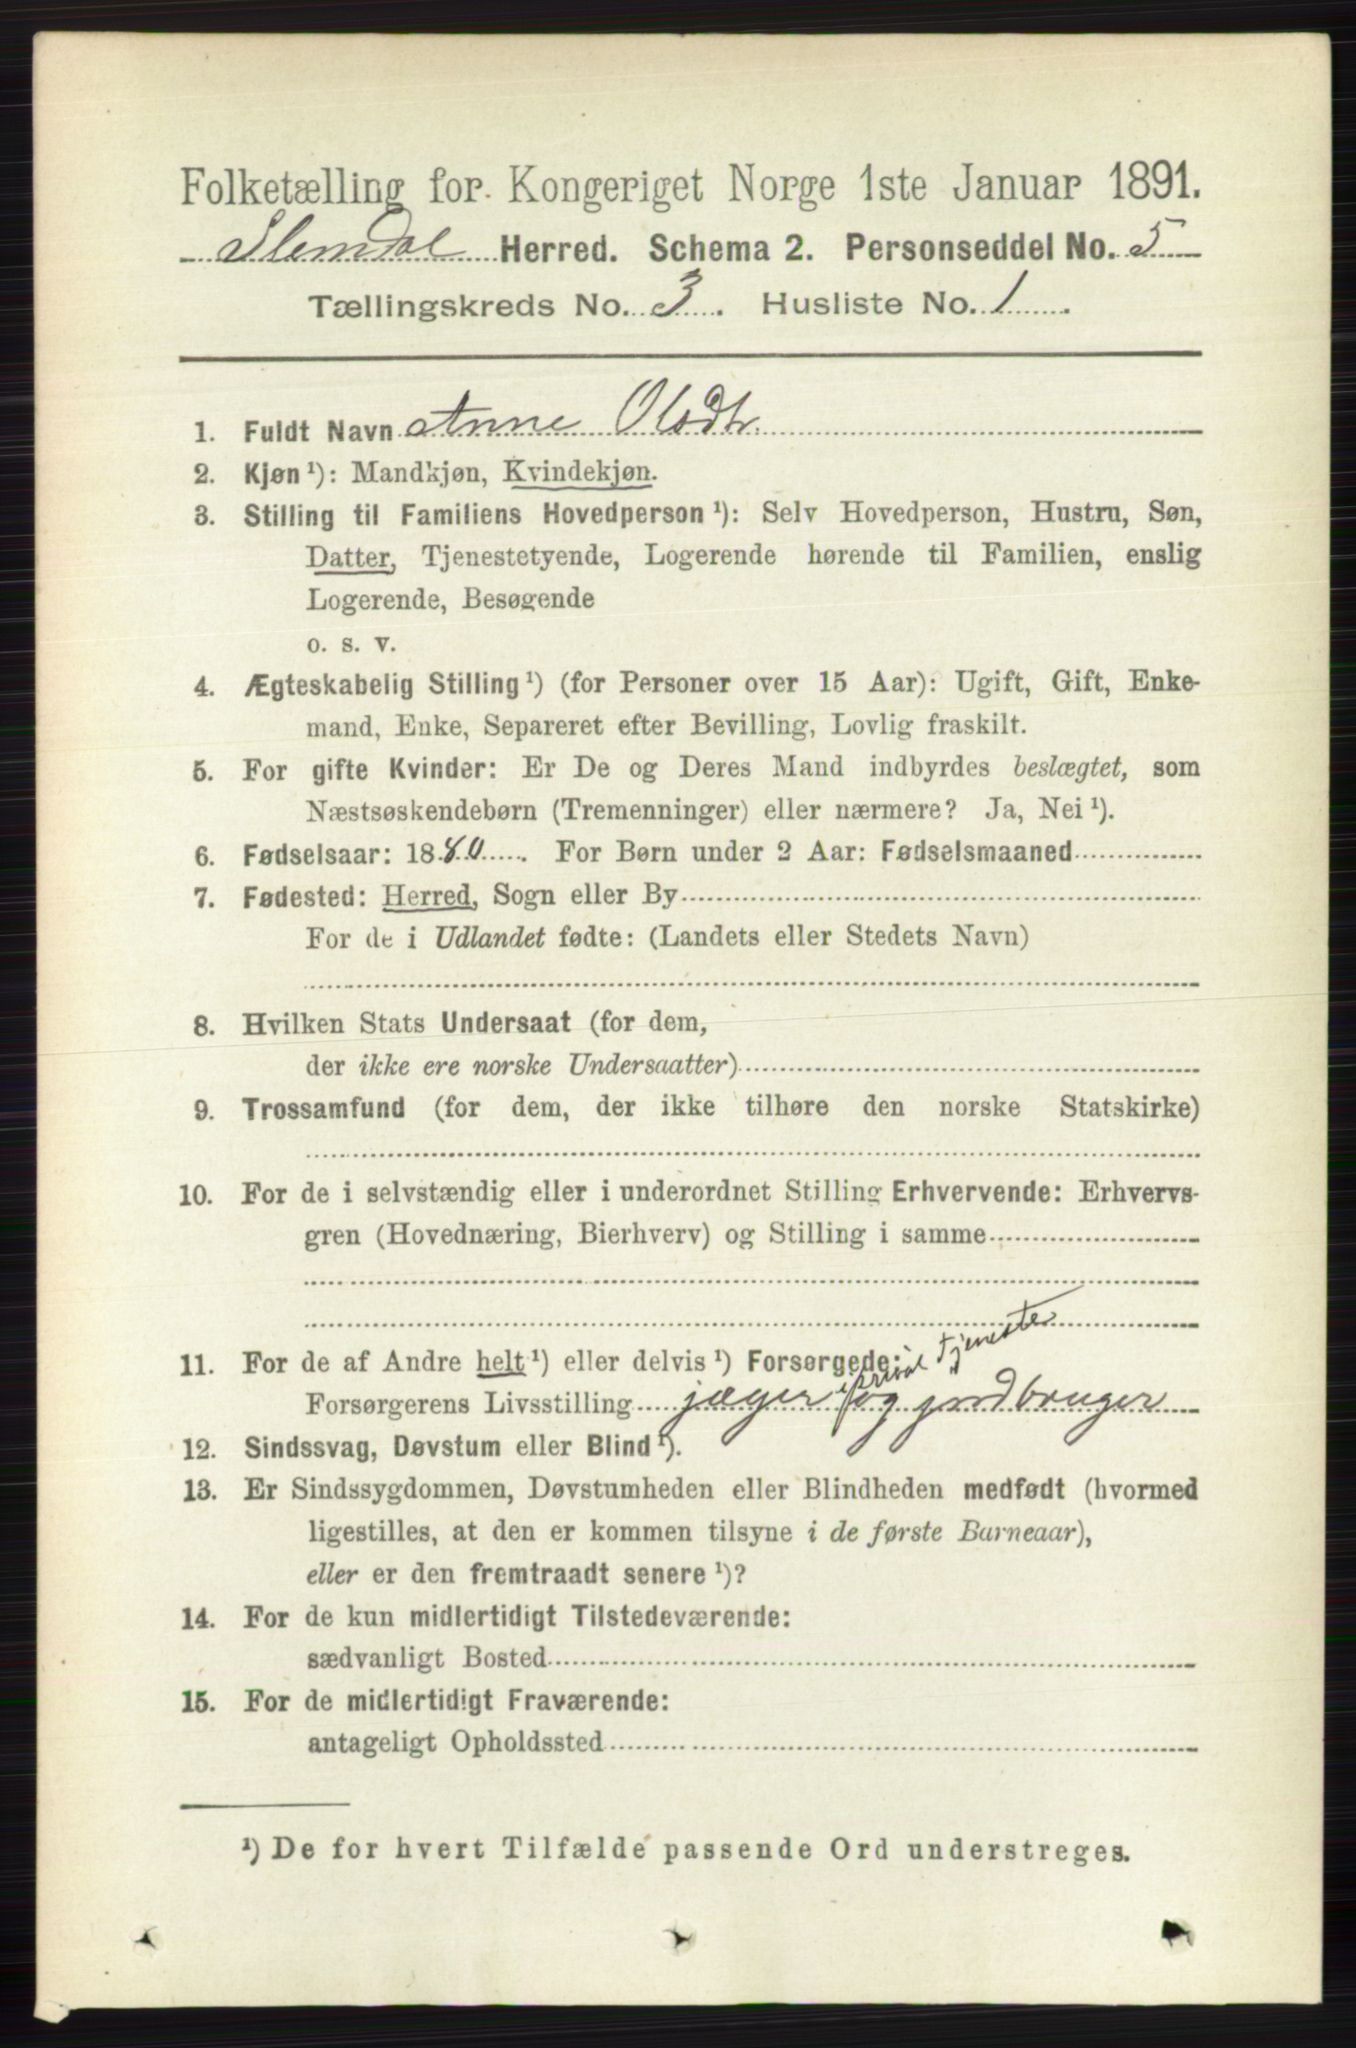 Folketælling for Kongeriget Norge 1ste Januar 1891.
Slemdal Herred. Schema 2. Personseddel No. 5
Tællingskreds No. 3. Husliste No. 1.
1. Fuldt Navn Anne Olsdtr.
2. Kjøn ¹): Mandkjøn, Kvindekjøn.
3. Stilling til Familiens Hovedperson ¹): Selv Hovedperson, Hustru, Søn,
Datter, Tjenestetyende, Logerende hørende til Familien, enslig
Logerende, Besøgende
o. s. v.
4. Ægteskabelig Stilling ¹) (for Personer over 15 Aar): Ugift, Gift, Enke-
mand, Enke, Separeret efter Bevilling, Lovlig fraskilt.
5. For gifte Kvinder: Er De og Deres Mand indbyrdes beslægtet, som
Næstsøskendebørn (Tremenninger) eller nærmere? Ja, Nei ¹).
6. Fødselsaar: 1880. For Børn under 2 Aar: Fødselsmaaned
7. Fødested: Herred, Sogn eller By
For de i Udlandet fødte: (Landets eller Stedets Navn)
8. Hvilken Stats Undersaat (for dem,
der ikke ere norske Undersaatter)
9. Trossamfund (for dem, der ikke tilhøre den norske Statskirke)
10. For de i selvstændig eller i underordnet Stilling Erhvervende: Erhvervs-
gren (Hovednæring, Bierhverv) og Stilling i samme
11. For de af Andre helt ¹) eller delvis ¹) Forsørgede:
i privat Tjeneste
Forsørgerens Livsstilling jæger og jordbruger
12. Sindssvag, Døvstum eller Blind ¹).
13. Er Sindssygdommen, Døvstumheden eller Blindheden medfødt (hvormed
ligestilles, at den er kommen tilsyne i de første Barneaar),
eller er den fremtraadt senere ¹)?
14. For de kun midlertidigt Tilstedeværende:
sædvanligt Bosted
15. For de midlertidigt Fraværende:
antageligt Opholdssted
¹) De for hvert Tilfælde passende Ord understreges.